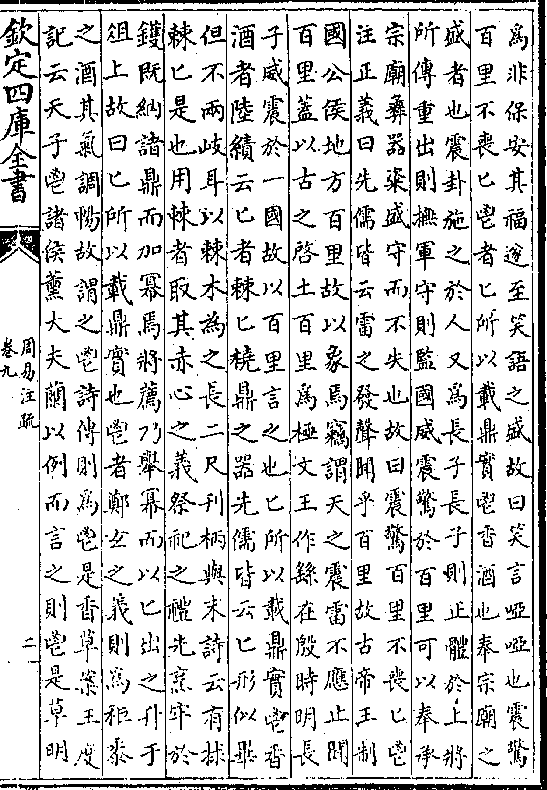 為非保安其福遂至笑語之盛故曰笑言啞啞也震驚
百里不喪匕鬯者匕所以載鼎實鬯香酒也奉宗廟之
盛者也震卦施之於人又為長子長子則正體於上將
所傳重出則撫軍守則監國威震驚於百里可以奉承
宗廟彝器粢盛守而不失也故曰震驚百里不喪匕鬯
注正義曰先儒皆云雷之發聲聞乎百里故古帝王制
國公侯地方百里故以象焉竊謂天之震雷不應止聞
百里蓋以古之啓土百里為極文王作繇在殷時明長
子威震於一國故以百里言之也匕所以載鼎實鬯香
酒者陸績云匕者棘匕橈鼎之器先儒皆云匕形似畢
但不兩岐耳以棘木為之長二尺刊柄與末詩云有捄
棘匕是也用棘者取其赤心之義祭祀之禮先烹牢於
鑊既納諸鼎而加冪焉將薦乃舉冪而以匕出之升于
俎上故曰匕所以載鼎實也鬯者鄭玄之義則為秬黍
之酒其氣調暢故謂之鬯詩傳則為鬯是香草案王度
記云天子鬯諸侯薰大夫蘭以例而言之則鬯是草明
欽定四庫全書
周易注疏
卷九
二